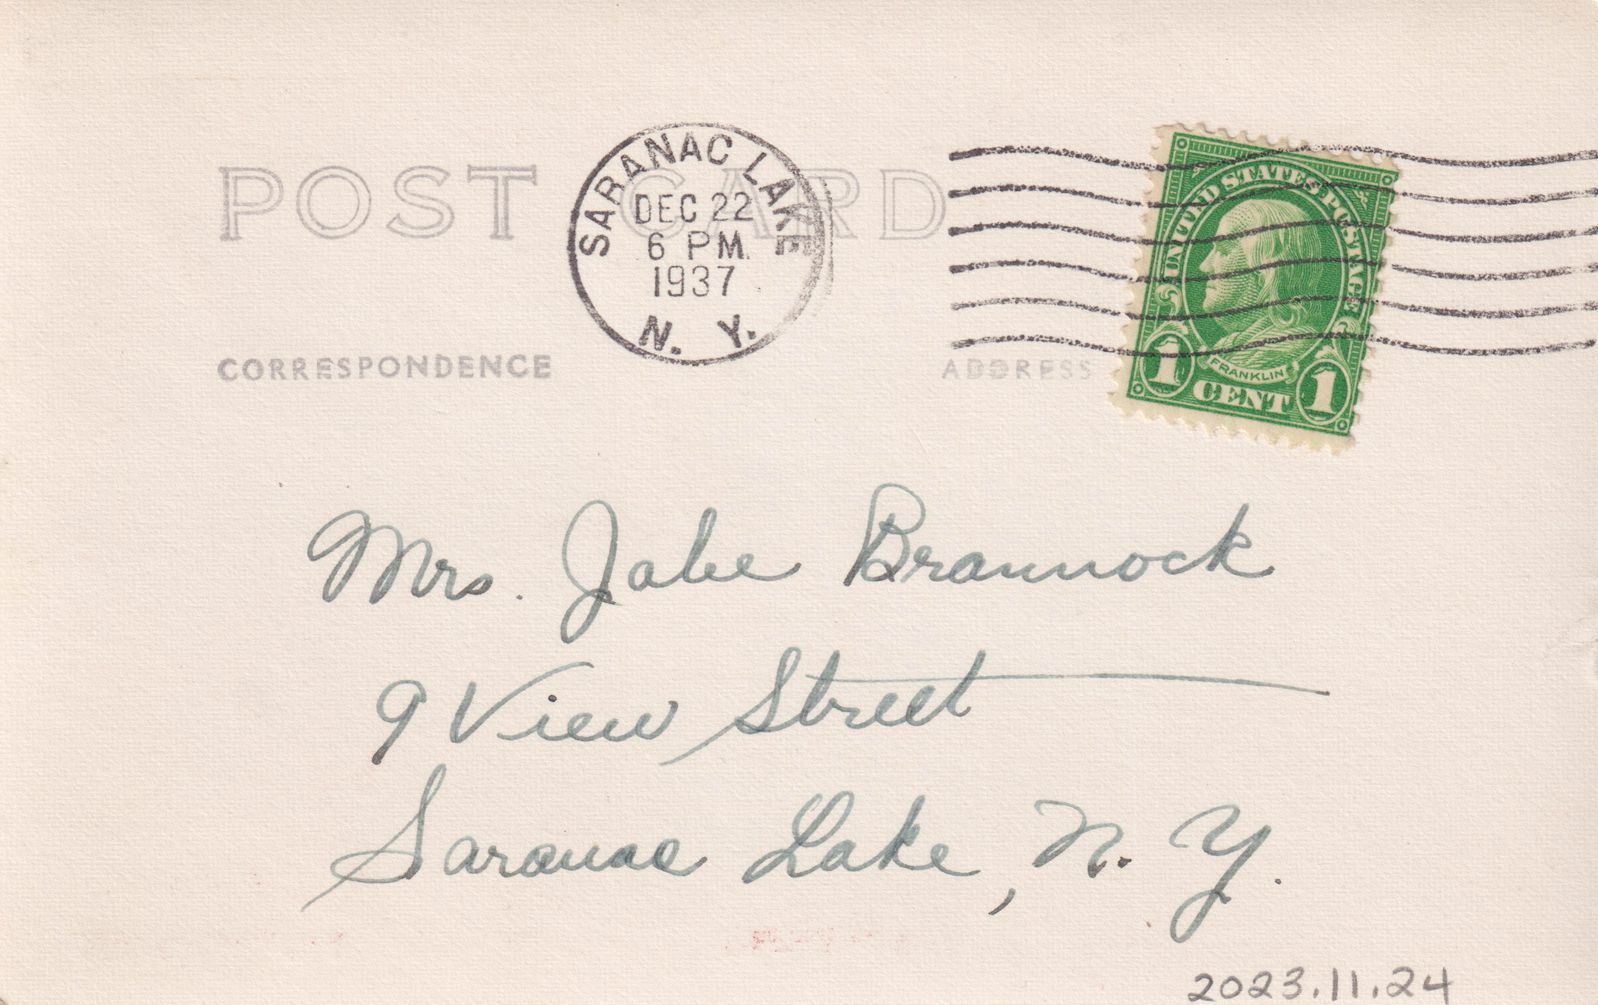 POST CARD
SARANAC LAKE
DEC 22
6 PM
1937
N. Y.
UNITED STATES POSTAGE
FRANKLIN
1 CENT 1
CORRESPONDENCE
ADDRESS
Mrs. Jabe Brannock
9 View Street
Saranac Lake, N. Y.
2023.11.24